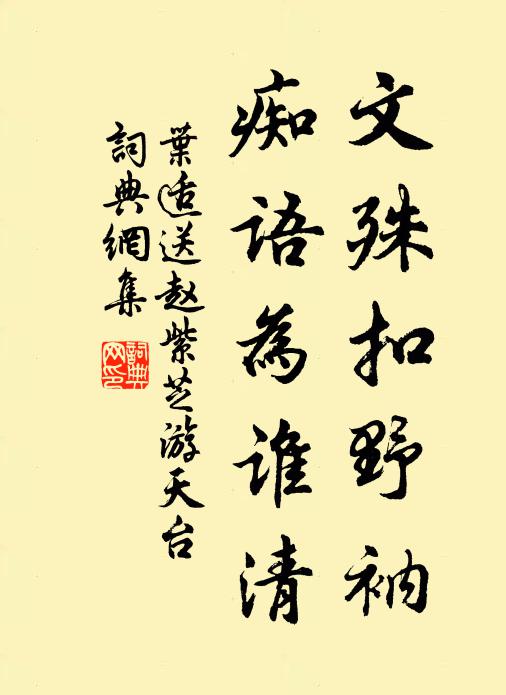 文殊扣野衲
痴语为谁清
葉适送赵紫芝游天台
詞典網集
詞典
网印